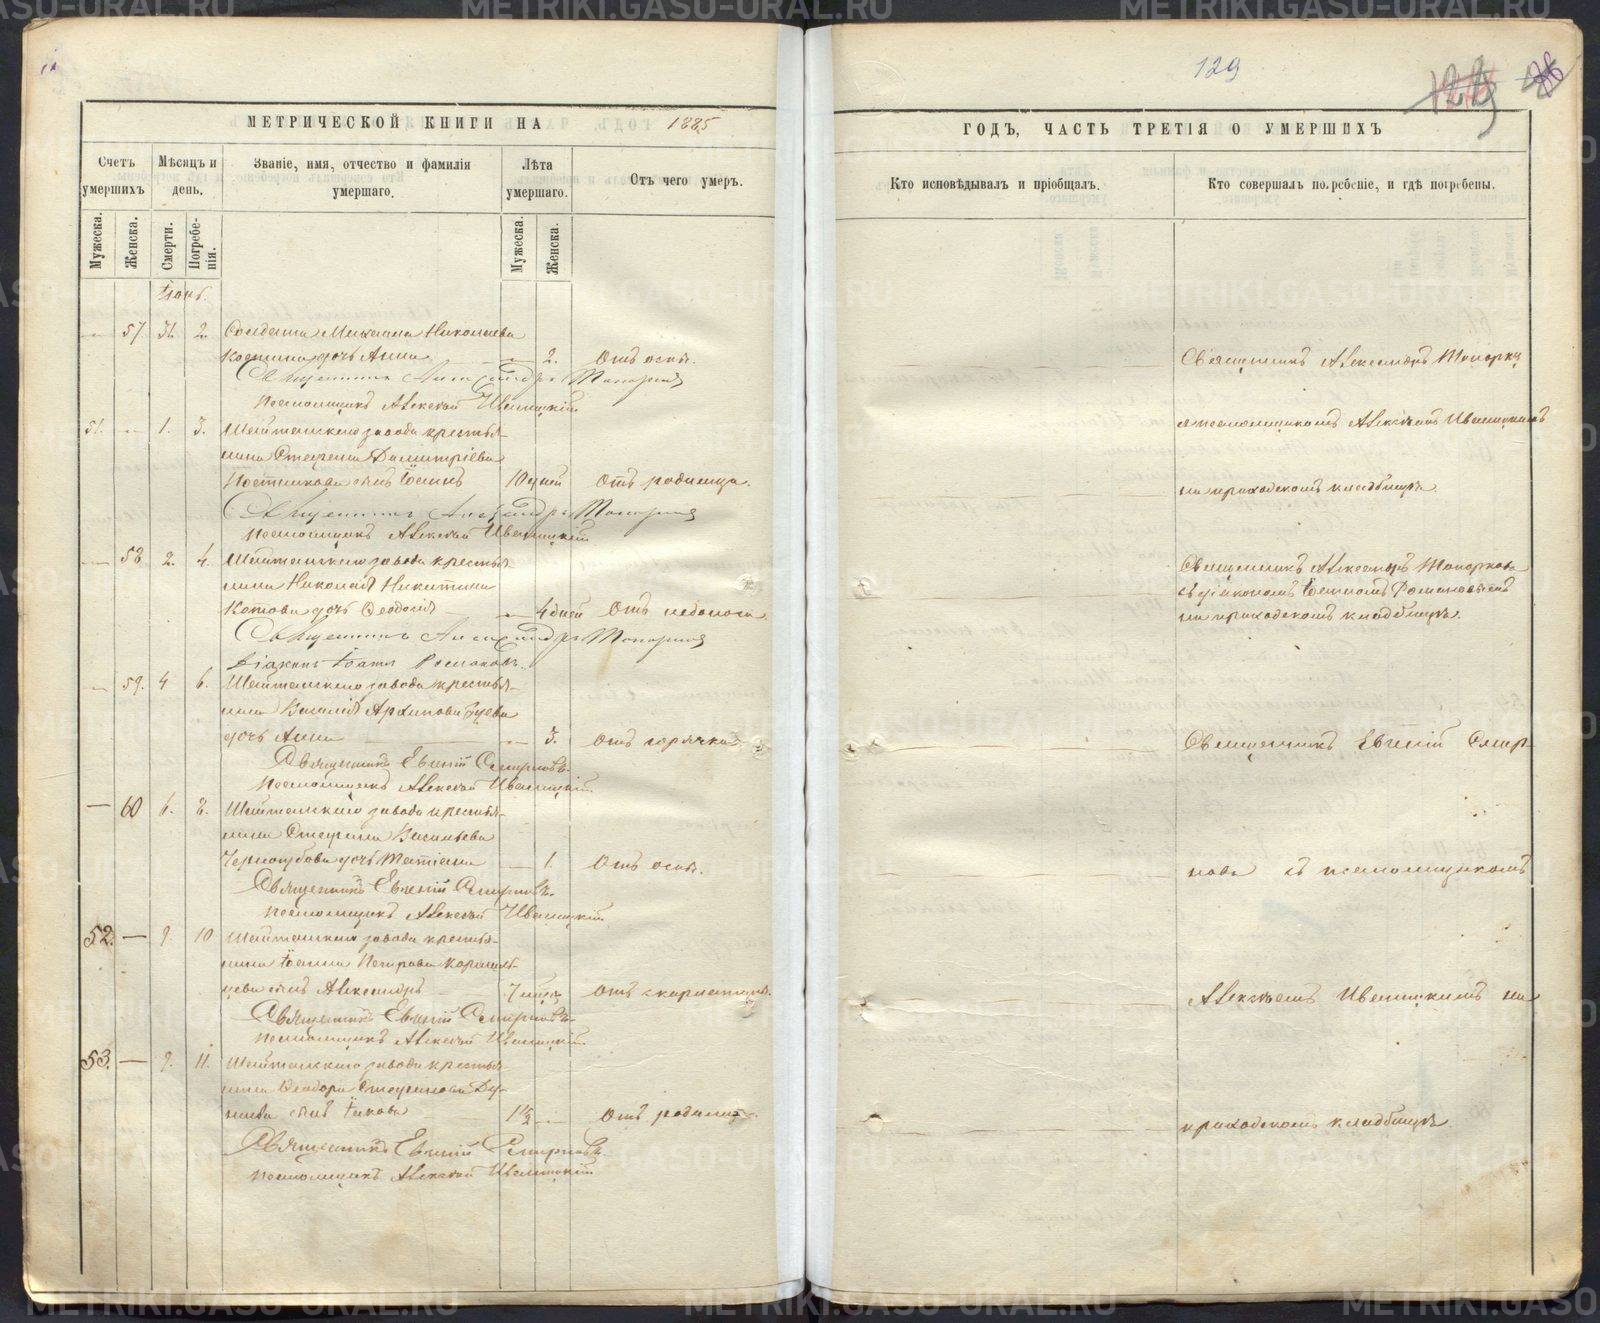 129
МЕТРИЧЕСКОЙ КНИГИ НА 1885
ГОДЪ, ЧАСТЬ ТРЕТІЯ О УМЕРШИХЪ
Счетъ умершихъ
Мѣсяцъ и день.
Званіе, имя, отчество и фамилія умершаго.
Лѣта умершаго.
Отъ чего умеръ.
Кто исповѣдывалъ и пріобщалъ.
Кто совершалъ погребеніе, и гдѣ погребены.
Мужеска.
Женска.
Смерти.
Погребенія.
Мужеска.
Женска.
Іюнь.
57. 31. 2. Солдата Михаила Николаева
дочь Анна 2. Отъ оспы.
Священникъ Александръ Топорковъ
Псаломщикъ Алексѣй Иваницкій
51. 1. 3. Шайтанскаго завода крестья-
нина Стефана Димитріева
Постникова сынъ Іоаннъ 10 дней Отъ родимца.
Священникъ Александръ Топорковъ
Псаломщикъ Алексѣй Иваницкій
58 2. 4. Шайтанскаго завода крестья-
нина Николая Никитина
Котова дочь Ѳеодосія 4 дней Отъ недоноса.
Священникъ Александръ Топорковъ
Діаконъ Іоаннъ Романовъ.
59. 4 6. Шайтанскаго завода крестья-
нина Василія Архипова
дочь Анна 3. Отъ горячки.
Священникъ Евгеній Смирновъ.
Псаломщикъ Алексѣй Иваницкій.
60 6. 8. Шайтанскаго завода крестья-
нина Стефана Васильева
дочь Татіана 1. Отъ оспы.
Священникъ Евгеній Смирновъ.
Псаломщикъ Алексѣй Иваницкій
52. 9. 10 Шайтанскаго завода крестья-
нина Іоанна Петрова
сынъ Александръ 7 Отъ скарлатины.
Священникъ Евгеній Смирновъ.
Псаломщикъ Алексѣй Иваницкій
53. 9. 11. Шайтанскаго завода крестья-
нина Ѳеодора Стефанова Ду-
наева сынъ Іаковъ 1½ Отъ родимца.
Священникъ Евгеній Смирновъ.
Псаломщикъ Алексѣй Иваницкій
Священникъ Александръ Топорковъ
съ псаломщикомъ Алексѣемъ Иваницкимъ
на приходскомъ кладбищѣ.
Священникъ Александръ Топорковъ
съ діакономъ Іоанномъ Романовымъ
на приходскомъ кладбищѣ.
Священникъ Евгеній Смир-
новъ съ псаломщикомъ
Алексѣемъ Иваницкимъ на
приходскомъ кладбищѣ.
METRIKI.GASU-URAL.RU